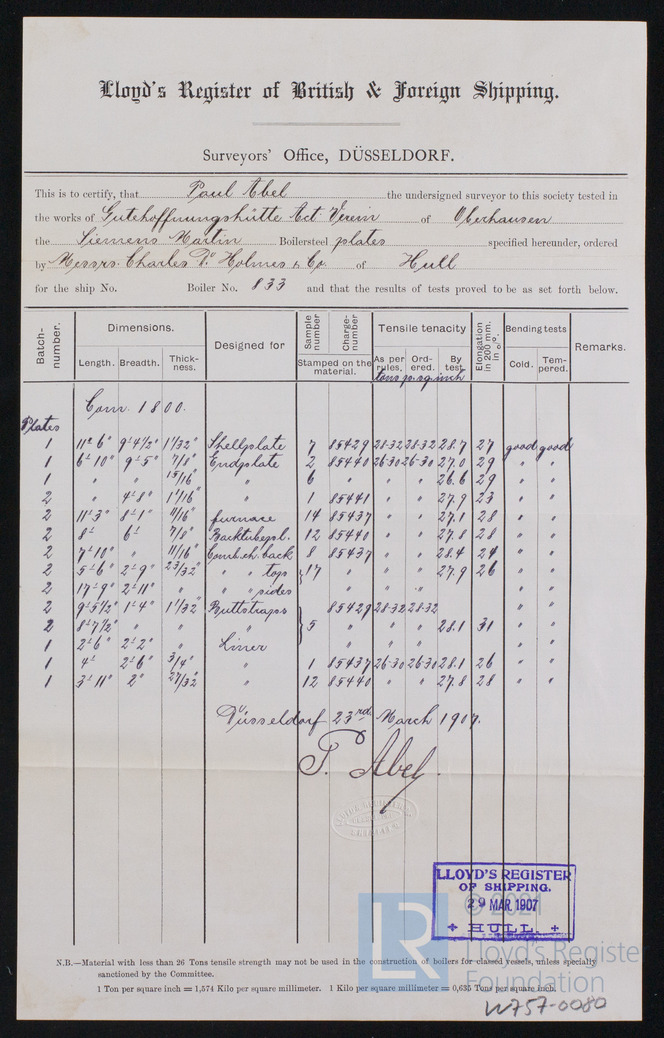 Lloyd's Register of British & Foreign Shipping.
Surveyors' Office, DÜSSELDORF.
This is to certify, that Paul Abel the undersigned surveyor to this society tested in
the works of Gutehoffnungshütte Act. Verein of Oberhausen
the Siemens Martin Boilersteel plates specified hereunder, ordered
by Messrs. Charles D. Holmes & Co. of Hull
for the ship No. Boiler No. 833 and that the results of tests proved to be as set forth below.
Batch-number. Dimensions. Designed for Sample number Charge-number Tensile tenacity Elongation in 200 mm. in %. Bending tests Remarks.
Length. Breadth. Thick-ness. Stamped on the material. As per rules, Ord-ered. By test. Cold. Tem-pered.
tons p. sq. inch
Com. 1800.
Plates
1 11' 6" 9' 4½" 1 1/32" Shellplate 7 85429 28-32 28-32 28.7 27 good good
1 6' 10" 9' 5" 7/8" Endplate 2 85440 26-30 26-30 27.0 29 " "
1 " " 15/16" " 6 " " " 26.6 29 " "
2 " 4' 8" 1 1/16" " 1 85441 " " 27.9 23 " "
2 11' 3" 8' 1" 11/16" furnace 14 85437 " " 27.1 28 " "
2 8' 6' 7/8" Backtubepl. 12 85440 " " 27.8 28 " "
2 7' 10" " 11/16" Comb. ch. back 8 85437 " " 28.4 24 " "
2 5' 6" 2' 9" 23/32" " " tops } 17 " " " 27.9 26 " "
2 17' 9" 2' 11" " " " sides " " " " "
2 9' 5½" 1' 4" 1 1/32" Buttstraps 85429 28-32 28-32 " "
2 8' 7½" " " " } 5 " " " 28.1 31 " "
1 2' 6" 2' 2" " Liner " " " " "
1 4' 2' 6" 3/4" " 1 85437 26-30 26-30 28.1 26 " "
1 3' 11" 2' 27/32" " 12 85440 " " 27.8 28 " "
Düsseldorf 23rd March 1907.
P. Abel.
LLOYD'S REGISTER
OF SHIPPING.
29 MAR. 1907
+ HULL. +
© 2021
LR
Lloyd's Registe
Foundation
N.B.—Material with less than 26 Tons tensile strength may not be used in the construction of boilers for classed vessels, unless specially
sanctioned by the Committee.
1 Ton per square inch = 1,574 Kilo per square millimetre. 1 Kilo per square millimetre = 0,635 Tons per square inch.
W757-0080